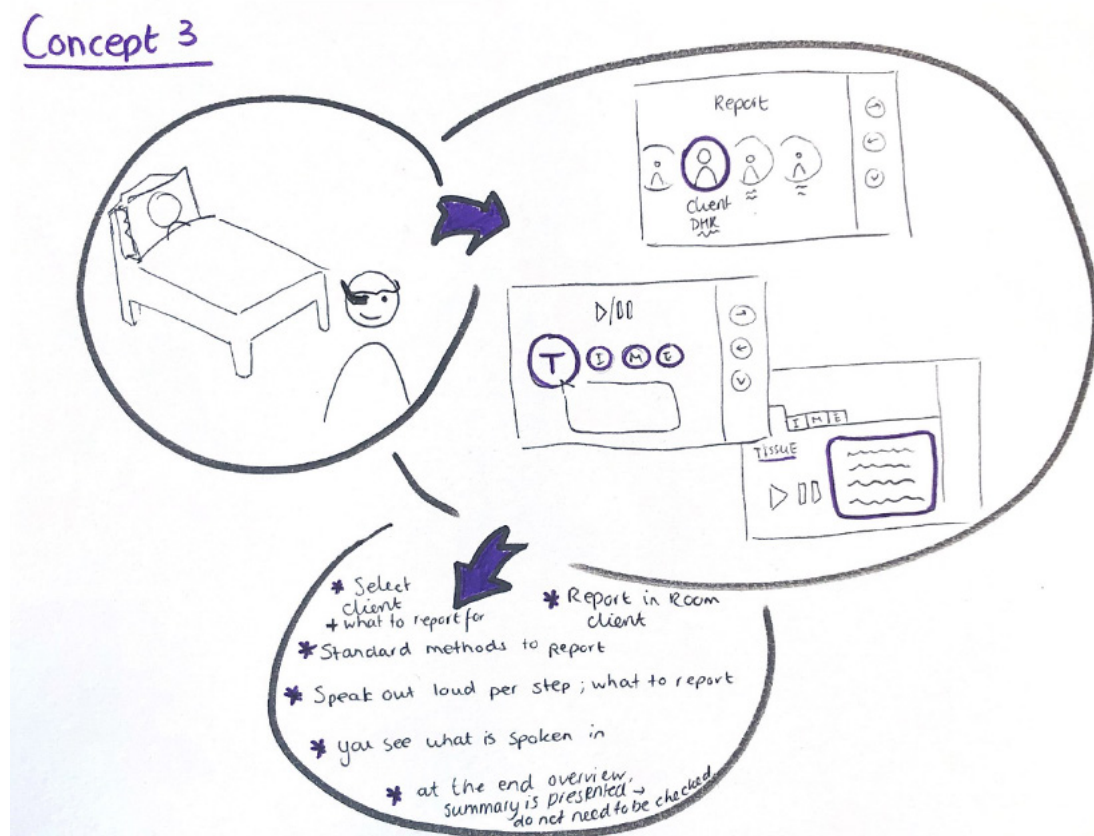 Concept 3
Report
Client
DHR
T I M E
I M E
TISSUE
* Select
client
+ what to report for
* Report in Room
client
* Standard methods to report
* Speak out loud per step; what to report
* you see what is spoken in
* at the end overview,
summary is presented →
do not need to be checked.